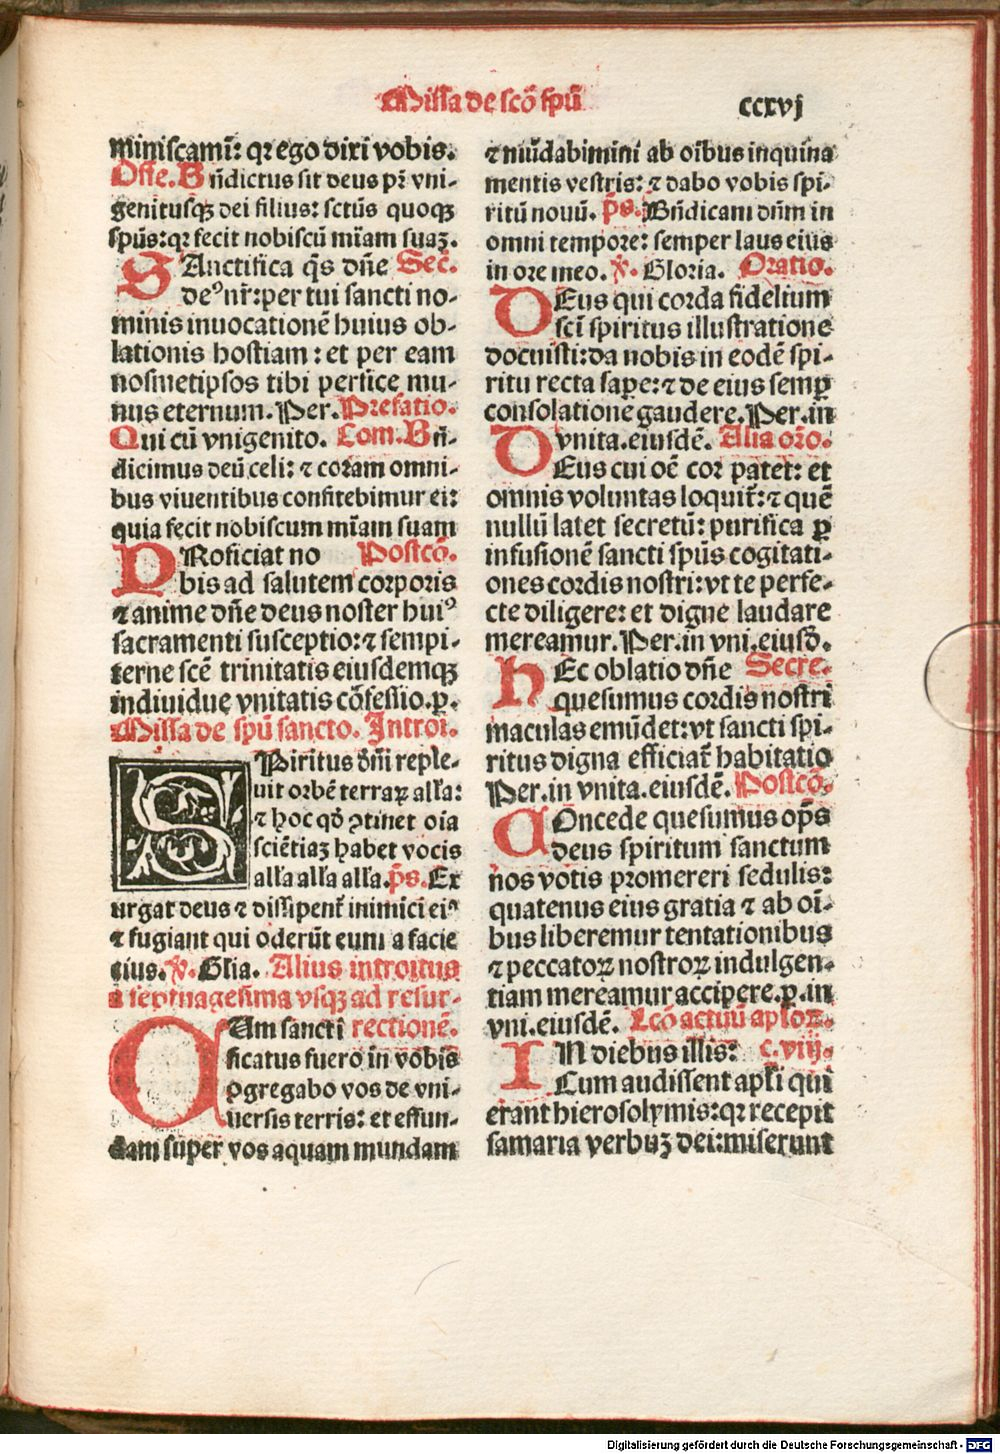 Missa de scō spū
ccxvj
miniscamī: qꝛ ego dixi vobis.
Offe. Bn̄dictus sit deus pr̄ vni-
genitusqꝫ dei filius: sctūs quoqꝫ
spūs: qꝛ fecit nobiscū mīam suaꝫ.
SAnctifica q̄s dn̄e Sec̄.
deꝰ nr̄: per tui sancti no-
minis inuocationē huius ob-
lationis hostiam: et per eam
nosmetipsos tibi perfice mu-
nus eternum. Per. Prefatio.
Qui cū vnigenito. Com. Bn̄-
dicimus deū celi: ⁊ coram omni-
bus viuentibus confitebimur ei:
quia fecit nobiscum mīam suam
PRoficiat no Postcō.
bis ad salutem corporis
⁊ anime dn̄e deus noster huiꝰ
sacramenti susceptio: ⁊ sempi-
terne scē trinitatis eiusdemqꝫ
indiuidue vnitatis cōfessio. ꝑ.
Missa de spū sancto. Introi.
SPiritus dn̄i reple-
uit orbē terraꝝ alla:
⁊ hoc qd̄ ꝯtinet oīa
sciētiaꝫ habet vocis
alla alla alla. p̄s. Ex
urgat deus ⁊ dissipent̄ inimici eiꝰ
⁊ fugiant qui oderūt eum a facie
eius. ℣. Glia. Alius introitus
a septuagesima vsqꝫ ad resur-
CUm sancti rectionē.
ficatus fuero in vobis
ꝯgregabo vos de vni-
uersis terris: et effun-
dam super vos aquam mundam
⁊ mūdabimini ab oībus inquina
mentis vestris: ⁊ dabo vobis spi-
ritū nouū. p̄s. Bn̄dicam dn̄m in
omni tempore: semper laus eius
in ore meo. ℣. Gloria. Oratio.
DEus qui corda fidelium
scī spiritus illustratione
docuisti: da nobis in eodē spi-
ritu recta sapere: ⁊ de eius semꝑ
consolatione gaudere. Per. in
vnita. eiusdē. Alia orō.
DEus cui oē cor patet: et
omnis voluntas loquit̄: ⁊ quē
nullū latet secretū: purifica ꝑ
infusionē sancti spūs cogitati-
ones cordis nostri: vt te perfe-
cte diligere: et digne laudare
mereamur. Per. in vni. eiusd̄.
HEc oblatio dn̄e Secre.
quesumus cordis nostri
maculas emūdet: vt sancti spi-
ritus digna efficiat̄ habitatio
Per. in vnita. eiusdē. Postcō.
COncede quesumus op̄s
deus spiritum sanctum
nos votis promereri sedulis:
quatenus eius gratia ⁊ ab oī-
bus liberemur tentationibus
⁊ peccatoꝝ nostroꝝ indulgen-
tiam mereamur accipere. ꝑ. in
vni. eiusdē. Lcō actuū aploꝝ.
IN diebus illis: c. viij.
Cum audissent apl̄i qui
erant hierosolymis: qꝛ recepit
samaria verbuꝫ dei: miserunt
Digitalisierung gefördert durch die Deutsche Forschungsgemeinschaft - DFG